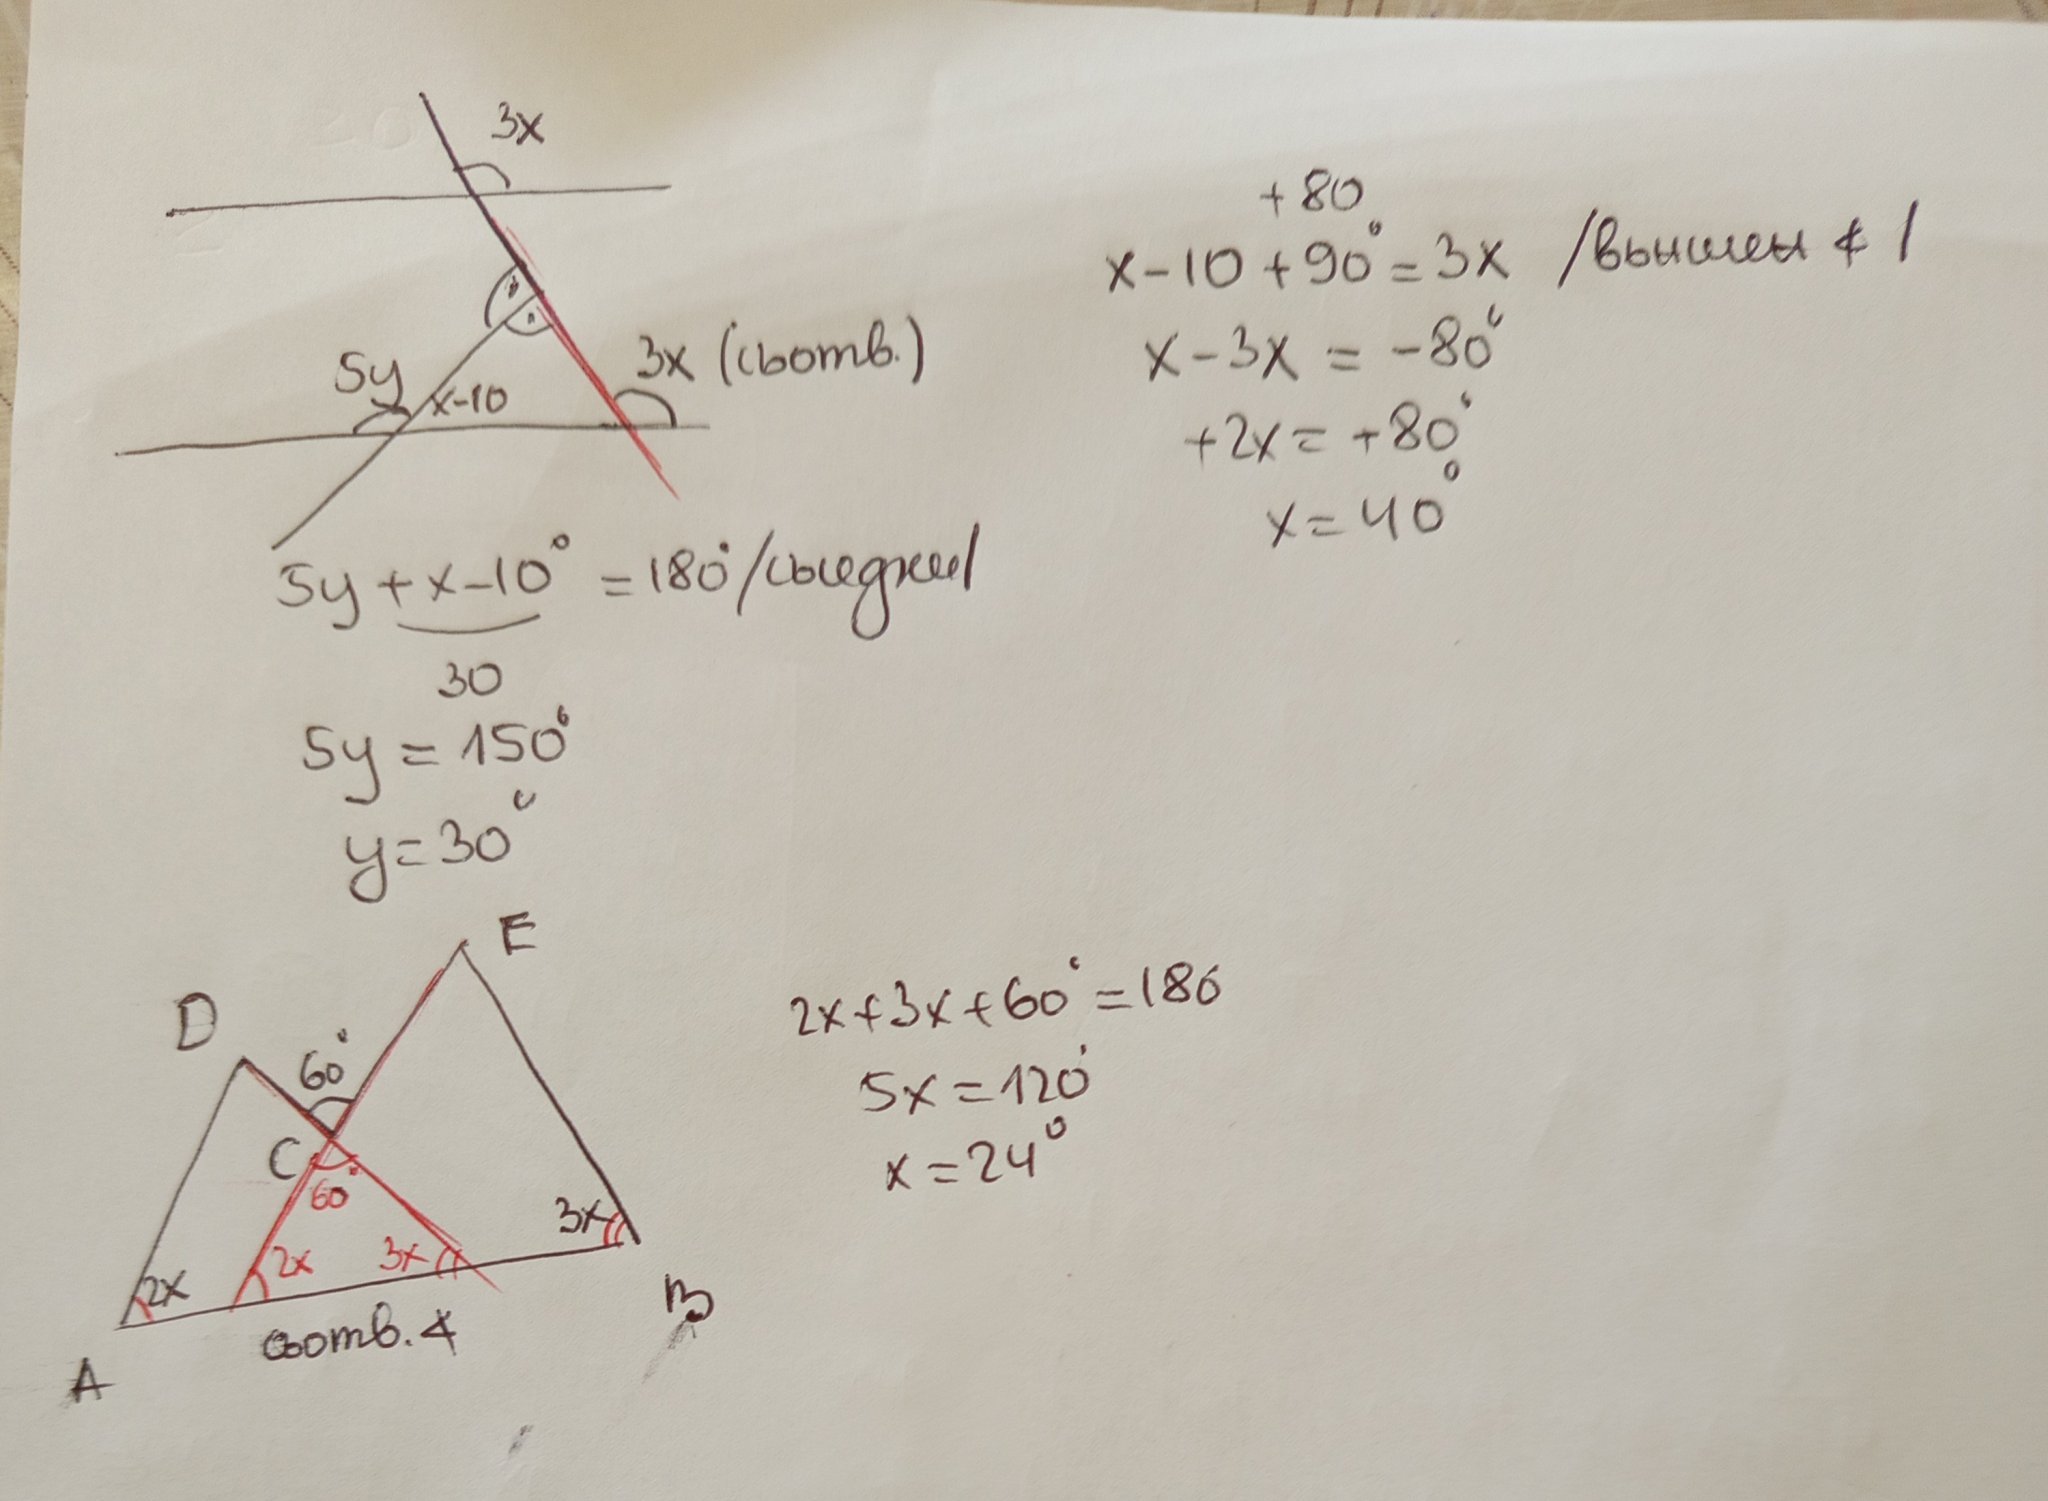 3x
5y
x-10
3x (съотв.)
5y + x-10° = 180° /съседни/
30
5y = 150°
y = 30°
+80
x-10+90° = 3x /външен ∢/
x-3x = -80°
+2x = +80°
x = 40°
D
E
60°
C
60°
2x
2x
3x
3x
A
B
съотв. ∢
2x+3x+60° = 180
5x = 120°
x = 24°